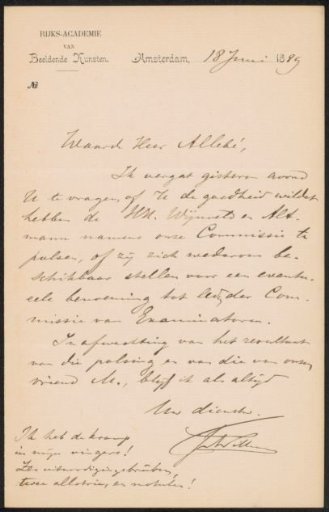 RIJKS-ACADEMIE
VAN
Beeldende Kunsten.
Amsterdam, 18 Juni 1889
No
Waarde Heer Allebé,
Ik vergat gisteren avond
U te vragen, of U de goedheid wildet
hebben de HH. Wijnveld en Alt-
mann namens onze Commissie te
polsen, of zij zich wederom be-
schikbaar stellen voor een eventu-
eele benoeming tot leden der Com-
missie van Examinatoren.
In afwachting van het resultaat
van die polsing en van die van onzen
vriend M., blijf ik als altijd
Uw dienstw.
Ik heb de kramp
in mijn vingers!
twee allotria, en notulen!